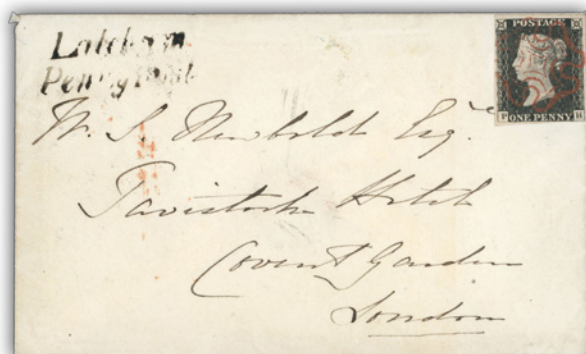 Penny Post
POSTAGE
ONE PENNY
W. S. Newbolt Esqre.
Tavistock Hotel
Covent Garden
London